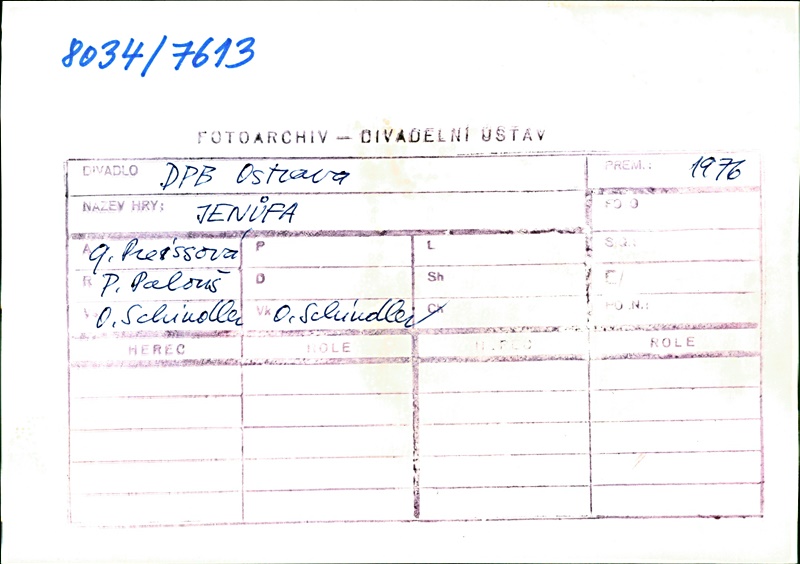 8034/7613
FOTOARCHIV — DIVADELNÍ ÚSTAV
DIVADLO DPB Ostrava PREM.: 1976
NÁZEV HRY: JENŮFA FOTO
A G. Preissová P L
R P. Palouš D Sh
O. Schindler Vk O. Schindler Ch
HEREC ROLE HEREC ROLE